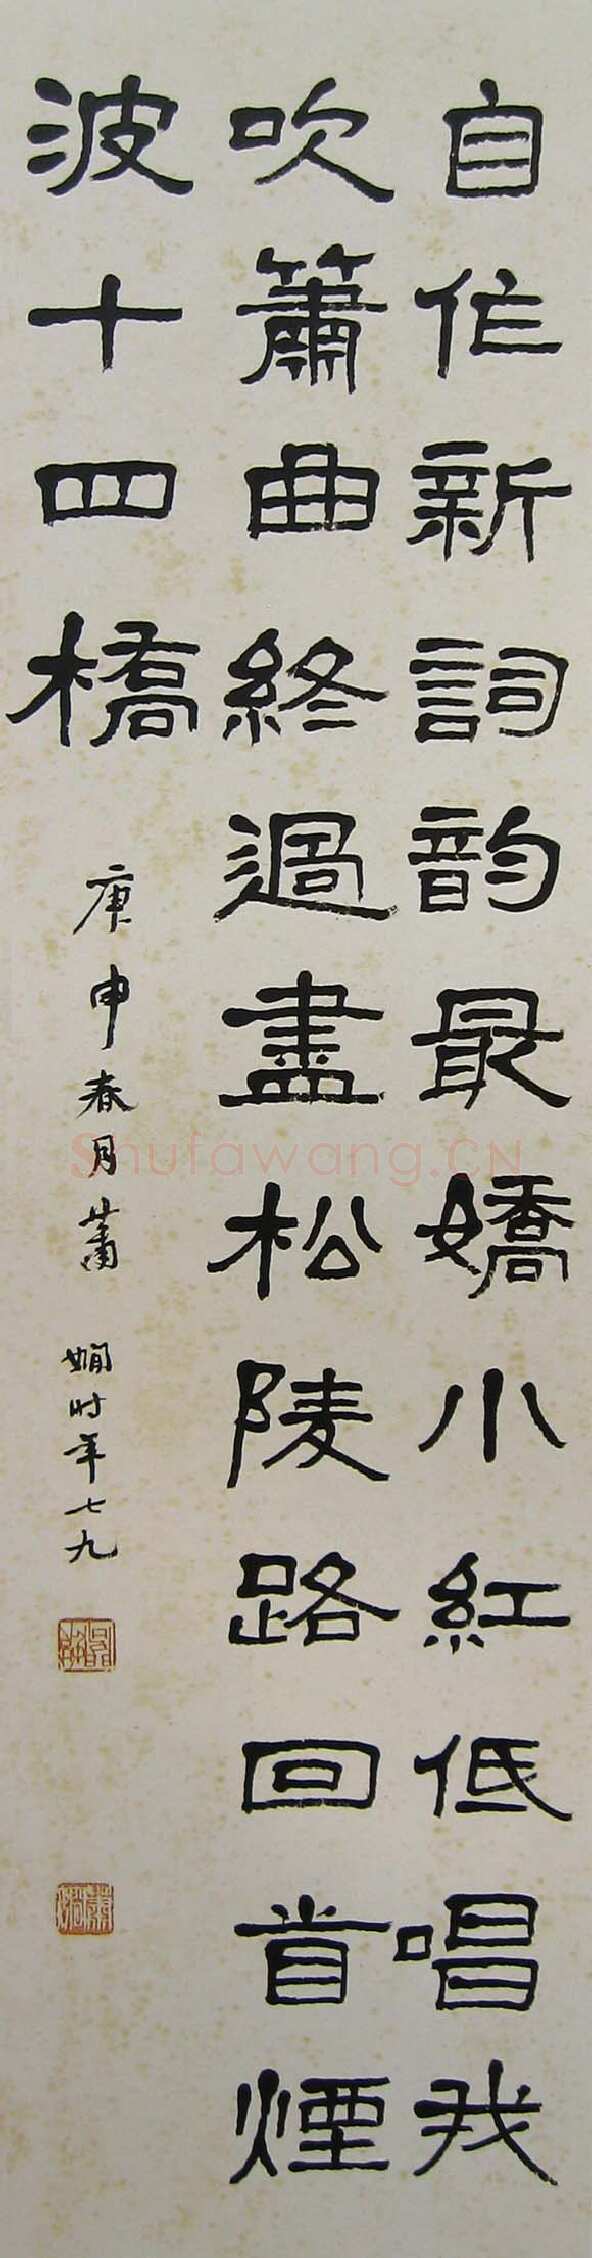 自作新詞韵最嬌小紅低唱我
吹簫曲終過盡松陵路回首煙
波十四橋
庚申春月蕭
嫺时年七九
Shufawang.CN